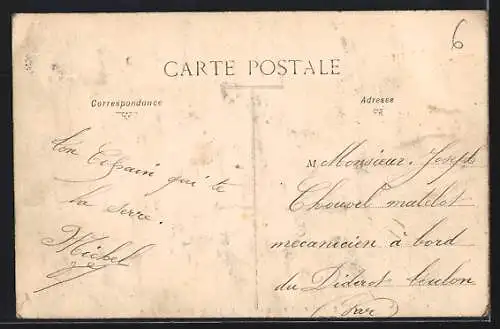 6
CARTE POSTALE
Correspondance
Adresse
ton Copain qui te
la serre.
Michel
M Monsieur. Joseph
Chouvel matelot
mecanicien à bord
du Diderot toulon
(Var)